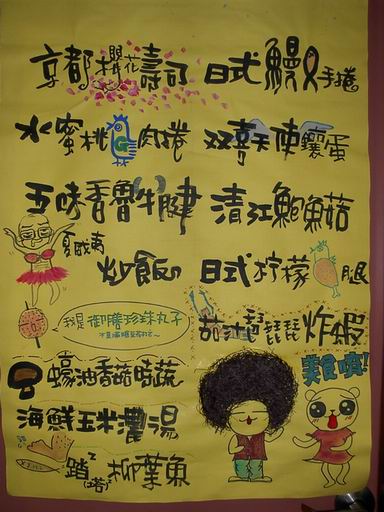 京都櫻花壽司
日式鰻手捲
水蜜桃肉捲
双喜天使鑲蛋
五味香魯牛腱
清江鮑魚菇
夏威夷
炒飯
日式柠檬腿
我是御膳珍珠丸子
茄汁琵琶炸蝦
美食唷!
蠔油香菇時蔬
海鮮玉米濃湯
踏(塔)柳葉魚